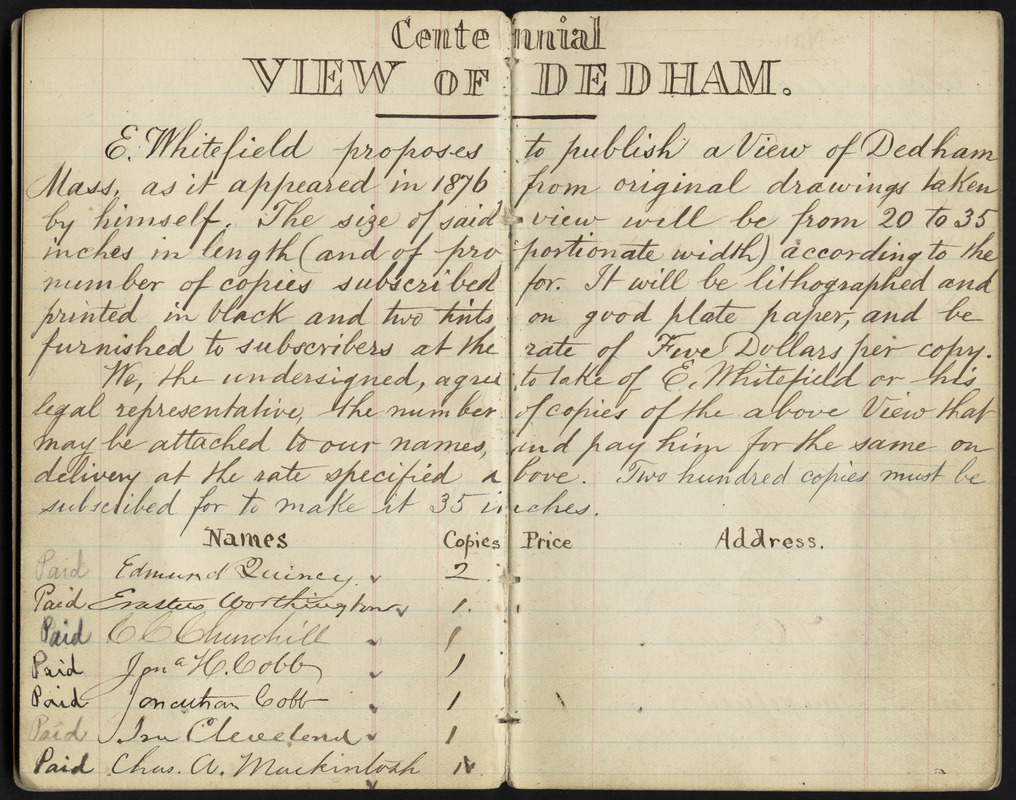 Centennial
VIEW OF DEDHAM.
E. Whitefield proposes to publish a View of Dedham
Mass. as it appeared in 1876 from original drawings taken
by himself. The size of said view will be from 20 to 35
inches in length (and of proportionate width) according to the
number of copies subscribed for. It will be lithographed and
printed in black and two tints on good plate paper, and be
furnished to subscribers at the rate of Five Dollars per copy.
We, the undersigned, agree to take of E. Whitefield or his
legal representative, the number of copies of the above View that
may be attached to our names, and pay him for the same on
delivery at the rate specified above. Two hundred copies must be
subscribed for to make it 35 inches.
Names Copies Price Address.
Paid Edmund Quincy 2
Paid Erastus Worthington 1.
Paid C C Churchill 1
Paid Jonª H. Cobb 1
Paid Jonathan Cobb 1
Paid Ira Cleveland 1
Paid Chas. A. Mackintosh 1